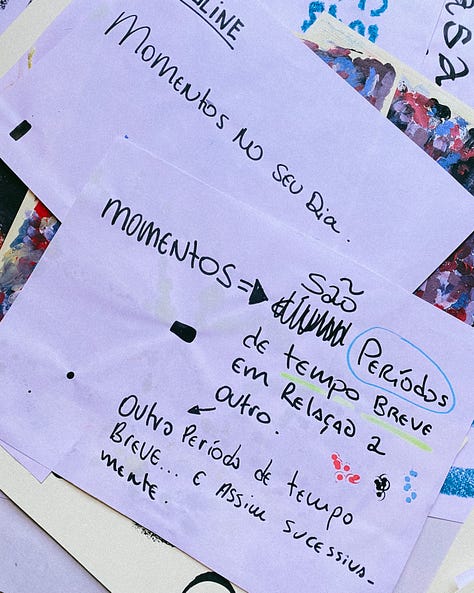 LINE
MOMENTOS NO SEU DIA.
MOMENTOS => SÃO
PERÍODOS
de tempo BREVE
EM RELAÇÃO a
outro.
Outro PERÍODO DE tempo
BREVE... E ASSIM SUCESSIVA-
MENTE.